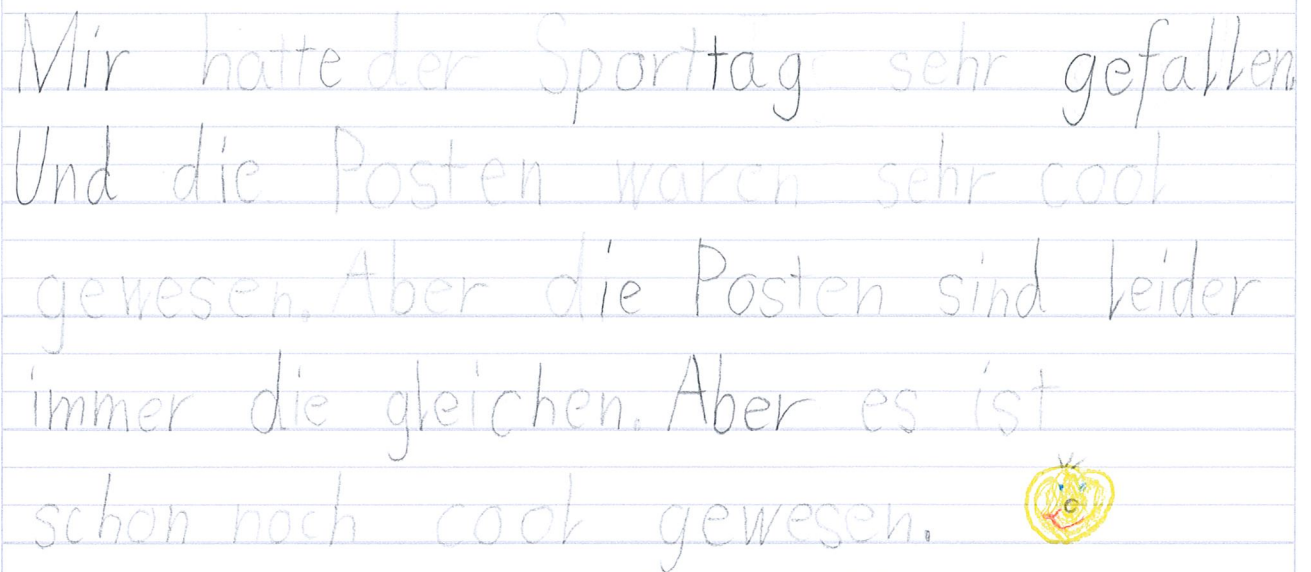 Mir hatte der Sporttag sehr gefallen.
Und die Posten waren sehr cool
gewesen. Aber die Posten sind leider
immer die gleichen. Aber es ist
schon noch cool gewesen.